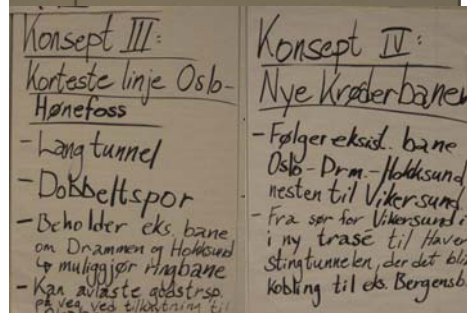 Konsept III:
Korteste linje Oslo-
Hønefoss
- Lang tunnel
- Dobbeltspor
- Beholder eks. bane
om Drammen og Hokksund
↳ muliggjør ringbane
- Kan avlaste godstrsp.
på veg ved tilknytning til
Konsept IV:
Nye Krøderbanen
- Følger eksist. bane
Oslo-Drm.-Hokksund
nesten til Vikersund.
- Fra sør for Vikersund i
i ny trasé til Haver-
stingtunnelen, der det bli
kobling til eks. Bergensb.